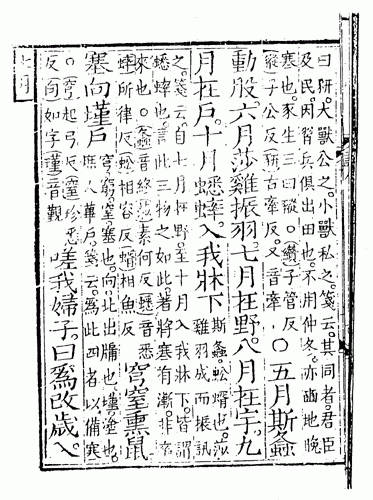 曰豣。大獸公之。小獸私之。箋云。其同者。君臣
及民。因習兵俱出田也。不用仲冬。亦豳地晚
寒也。豕生三曰豵。(纘)子管反
(豵)子公反(豣)古牽反。又音牽
○五月斯螽
動股。六月莎雞振羽。七月在野。八月在宇。九
月在戶。十月蟋蟀。入我牀下
斯螽。蚣蝑也。莎
雞羽成而振訊
之。箋云。自七月在野。至十月入我牀下。皆謂
蟋蟀也。言此三物之如此。著將寒有漸。非卒
來也。(螽)音終(莎)素何反(蟋)音悉
(蟀)所律反(蚣)相容反(蝑)相魚反
穹窒熏鼠
塞向墐戶
穹窮。窒塞也。向。北出牖也。墐塗也。
庶人蓽戶。箋云。爲此四者以備寒
○(穹)起弓反(窒)珍悉
反(向)如字(墐)音觀
嗟我婦子。曰爲改歲。入
七月